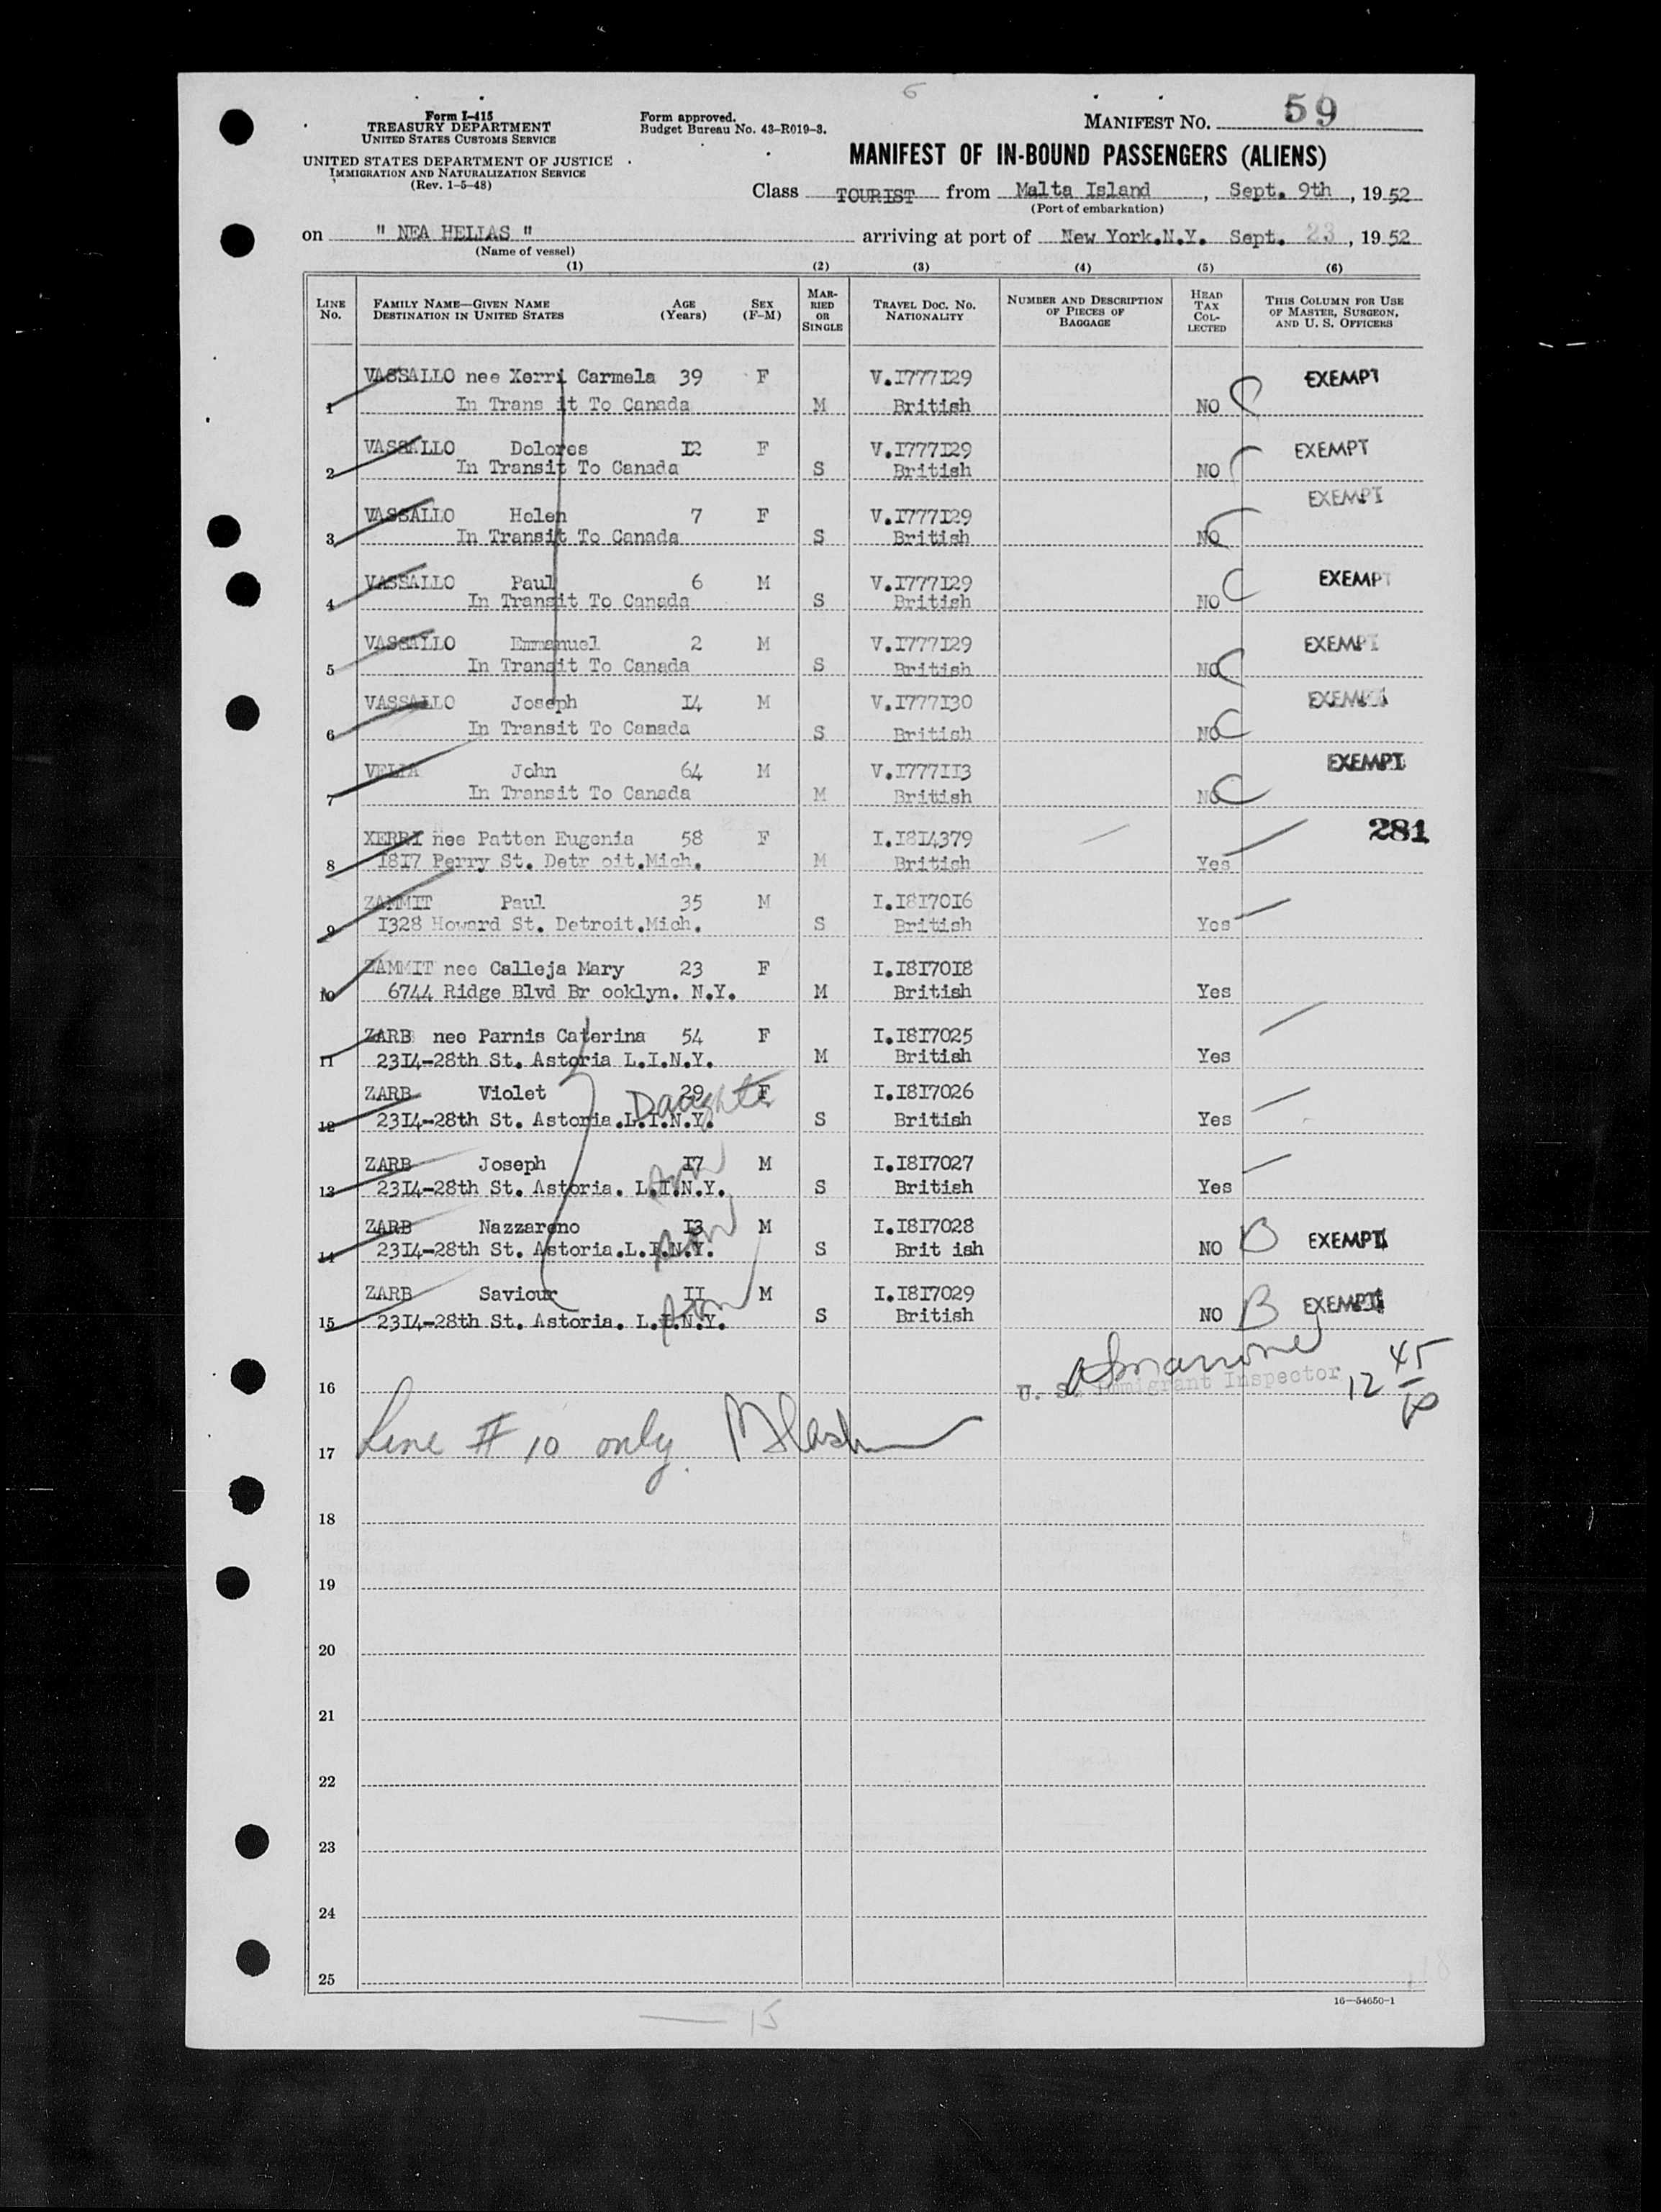 6
Form I-415
TREASURY DEPARTMENT
UNITED STATES CUSTOMS SERVICE
UNITED STATES DEPARTMENT OF JUSTICE
IMMIGRATION AND NATURALIZATION SERVICE
(Rev. 1-5-48)
Form approved.
Budget Bureau No. 43-R019-3.
MANIFEST No. 59
MANIFEST OF IN-BOUND PASSENGERS (ALIENS)
Class TOURIST from Malta Island, Sept. 9th, 1952
(Port of embarkation)
on " NEA HELLAS " arriving at port of New York.N.Y. Sept. 23, 1952
(Name of vessel)
(1) (2) (3) (4) (5) (6)
LINE No. FAMILY NAME—GIVEN NAME DESTINATION IN UNITED STATES AGE (Years) SEX (F-M) MARRIED OR SINGLE TRAVEL DOC. NO. NATIONALITY NUMBER AND DESCRIPTION OF PIECES OF BAGGAGE HEAD TAX COLLECTED THIS COLUMN FOR USE OF MASTER, SURGEON, AND U. S. OFFICERS
VASSALLO nee Xerri Carmela 39 F V.I777I29 EXEMPT
1 In Trans it To Canada M British NO C
VASSALLO Dolores I2 F V.I777I29 EXEMPT
2 In Transit To Canada S British NO C
VASSALLO Helen 7 F V.I777I29 EXEMPT
3 In Transit To Canada S British NO C
VASSALLO Paul 6 M V.I777I29 EXEMPT
4 In Transit To Canada S British NO C
VASSALLO Emmanuel 2 M V.I777I29 EXEMPT
5 In Transit To Canada S British NO C
VASSALLO Joseph I4 M V.I777I30 EXEMPT
6 In Transit To Canada S British NO C
VELLA John 64 M V.I777II3 EXEMPT
7 In Transit To Canada M British NO C
XERRI nee Patten Eugenia 58 F I.I8I4379 281
8 I8I7 Perry St. Detr oit.Mich. M British Yes
ZAMMIT Paul 35 M I.I8I70I6
9 I328 Howard St. Detroit.Mich. S British Yes
ZAMMIT nee Calleja Mary 23 F I.I8I70I8
10 6744 Ridge Blvd Br ooklyn. N.Y. M British Yes
ZARB nee Parnis Caterina 54 F I.I8I7025
11 23I4-28th St. Astoria L.I.N.Y. M British Yes
ZARB Violet 29 F I.I8I7026
Daughter
12 23I4-28th St. Astoria.L.I.N.Y. S British Yes
ZARB Joseph I7 M I.I8I7027
Son
13 23I4-28th St. Astoria. L.I.N.Y. S British Yes
ZARB Nazzareno I3 M I.I8I7028
Son
14 23I4-28th St. Astoria.L.I.N.Y. S Brit ish NO B EXEMPT
ZARB Saviour II M I.I8I7029
Son
15 23I4-28th St. Astoria. L.I.N.Y. S British NO B EXEMPT
16 U. S. Immigrant Inspector 12 45
17 Line # 10 only.
18
19
20
21
22
23
24
25
16—54650-1
15